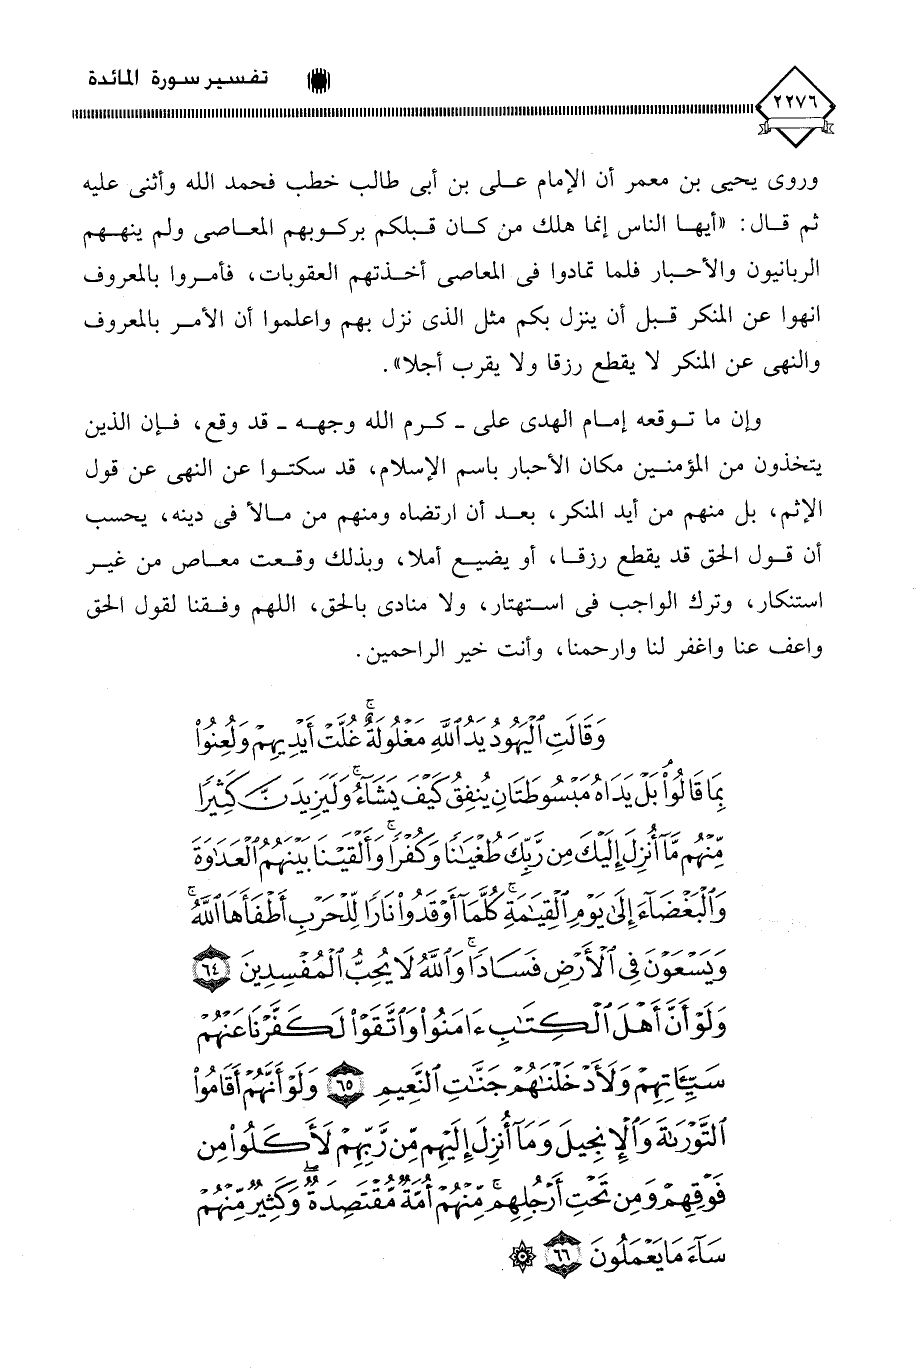 تفسير سورة المائدة
٢٢٧٦
وروى يحيى بن معمر أن الإمام على بن أبى طالب خطب فحمد الله وأثنى عليه
ثم قال: «أيها الناس إنما هلك من كان قبلكم بركوبهم المعاصى ولم ينههم
الربانيون والأحبار فلما تمادوا فى المعاصى أخذتهم العقوبات، فأمروا بالمعروف
انهوا عن المنكر قبل أن ينزل بكم مثل الذى نزل بهم واعلموا أن الأمر بالمعروف
والنهى عن المنكر لا يقطع رزقا ولا يقرب أجلا».
وإن ما توقعه إمام الهدى على - كرم الله وجهه - قد وقع، فإن الذين
يتخذون من المؤمنين مكان الأحبار باسم الإسلام، قد سكتوا عن النهى عن قول
الإثم، بل منهم من أيد المنكر، بعد أن ارتضاه ومنهم من مالأ فى دينه، يحسب
أن قول الحق قد يقطع رزقا، أو يضيع أملا، وبذلك وقعت معاص من غير
استنكار، وترك الواجب فى استهتار، ولا منادى بالحق، اللهم وفقنا لقول الحق
واعف عنا واغفر لنا وارحمنا، وأنت خير الراحمين.
وَقَالَتِ ٱلْيَهُودُ يَدُ ٱللَّهِ مَغْلُولَةٌ ۚ غُلَّتْ أَيْدِيهِمْ وَلُعِنُوا۟
بِمَا قَالُوا۟ ۘ بَلْ يَدَاهُ مَبْسُوطَتَانِ يُنفِقُ كَيْفَ يَشَآءُ ۚ وَلَيَزِيدَنَّ كَثِيرًا
مِّنْهُم مَّآ أُنزِلَ إِلَيْكَ مِن رَّبِّكَ طُغْيَـٰنًا وَكُفْرًا ۚ وَأَلْقَيْنَا بَيْنَهُمُ ٱلْعَدَٰوَةَ
وَٱلْبَغْضَآءَ إِلَىٰ يَوْمِ ٱلْقِيَـٰمَةِ ۚ كُلَّمَآ أَوْقَدُوا۟ نَارًا لِّلْحَرْبِ أَطْفَأَهَا ٱللَّهُ ۚ
وَيَسْعَوْنَ فِى ٱلْأَرْضِ فَسَادًا ۚ وَٱللَّهُ لَا يُحِبُّ ٱلْمُفْسِدِينَ ٦٤
وَلَوْ أَنَّ أَهْلَ ٱلْكِتَـٰبِ ءَامَنُوا۟ وَٱتَّقَوْا۟ لَكَفَّرْنَا عَنْهُمْ
سَيِّـَٔاتِهِمْ وَلَأَدْخَلْنَـٰهُمْ جَنَّـٰتِ ٱلنَّعِيمِ ٦٥ وَلَوْ أَنَّهُمْ أَقَامُوا۟
ٱلتَّوْرَىٰةَ وَٱلْإِنجِيلَ وَمَآ أُنزِلَ إِلَيْهِم مِّن رَّبِّهِمْ لَأَكَلُوا۟ مِن
فَوْقِهِمْ وَمِن تَحْتِ أَرْجُلِهِم ۚ مِّنْهُمْ أُمَّةٌ مُّقْتَصِدَةٌ ۖ وَكَثِيرٌ مِّنْهُمْ
سَآءَ مَا يَعْمَلُونَ ٦٦